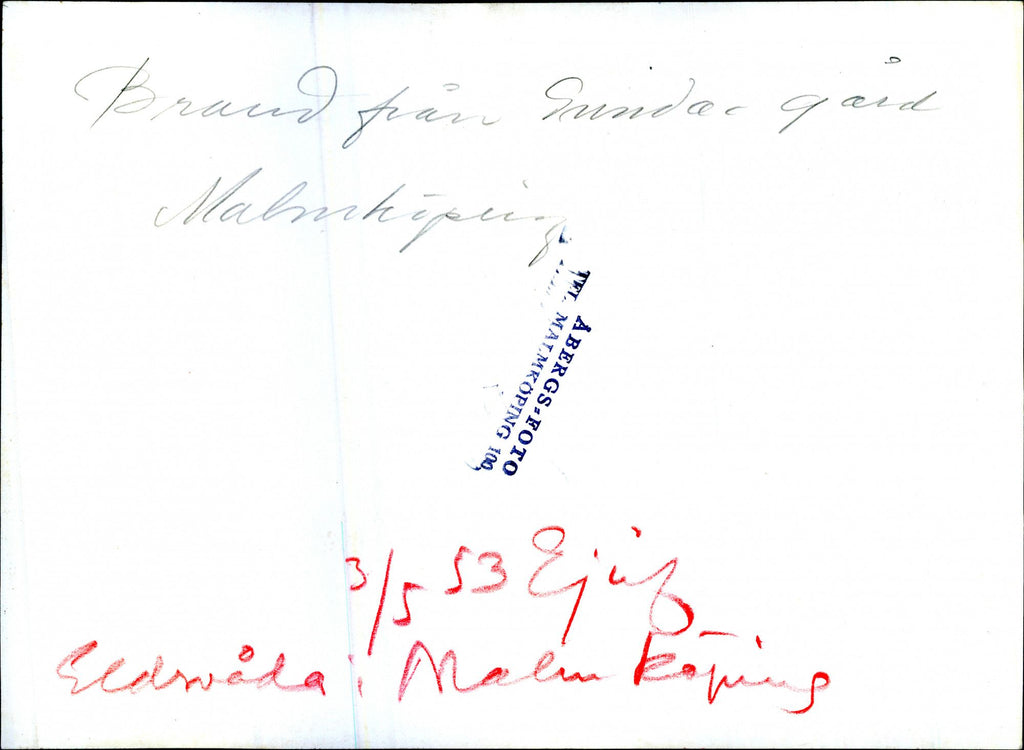 Brand från Sundae gård
Malmköping
ÅBERGS-FOTO
TEL. MALMKÖPING 100
3/5 53 Ej inf
Eldsvåda i Malmköping